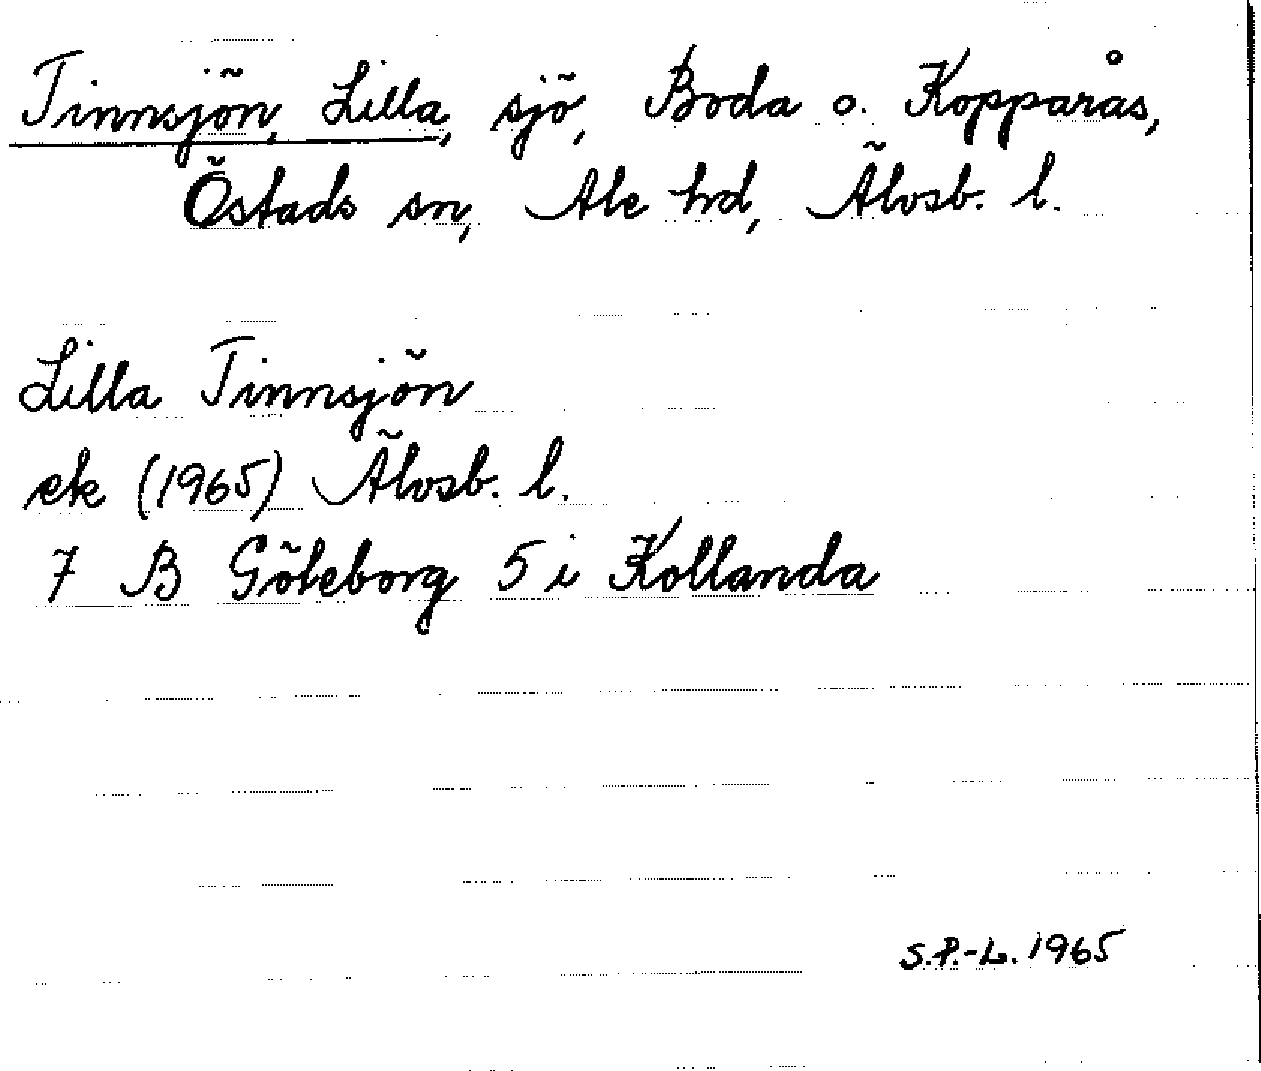 Tinnsjön, Lilla, sjö, Boda o. Kopparås,
Östads sn, Ale hd, Älvsb. l.
Lilla Tinnsjön
ek (1965) Älvsb. l.
7 B Göteborg 5 i Kollanda
S.P.-L. 1965